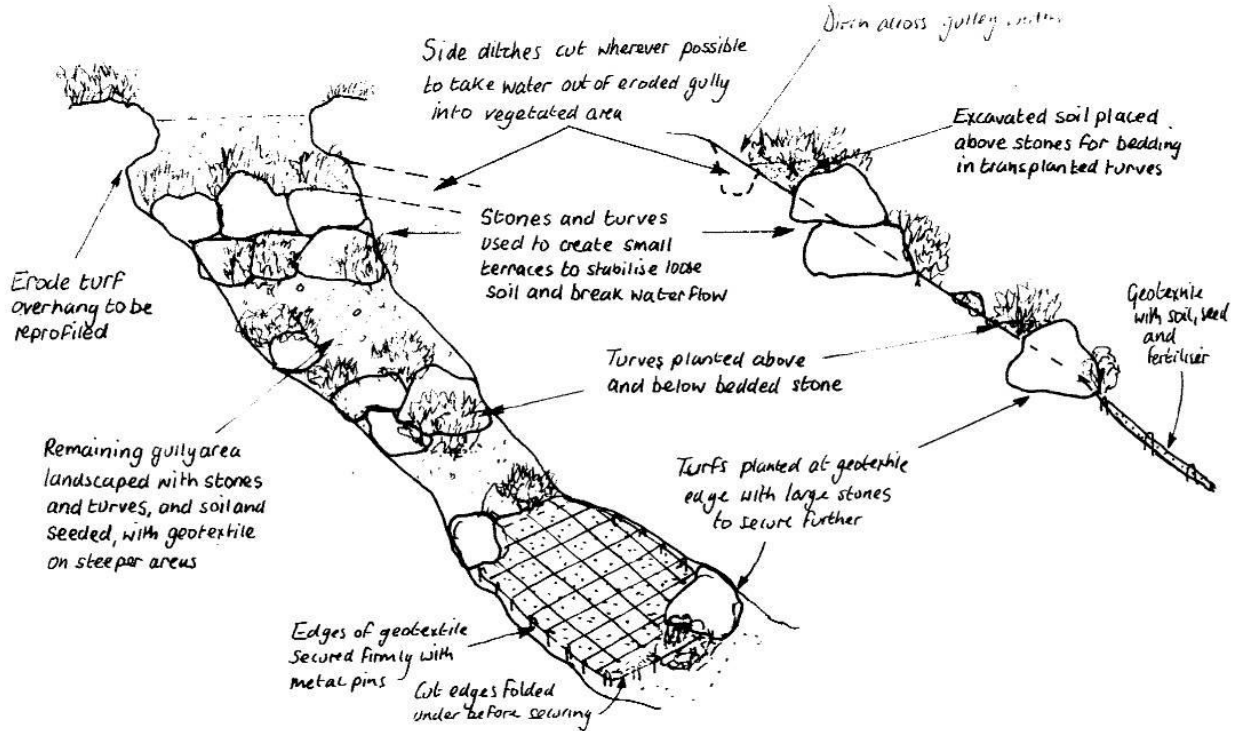 Side ditches cut wherever possible
to take water out of eroded gully
into vegetated area
across gulley
Excavated soil placed
above stones for bedding
in transplanted turves
Stones and turves
used to create small
terraces to stabilise loose
soil and break waterflow
Erode turf
overhang to be
reprofiled
Geotextile
with soil, seed
and
fertiliser
Turves planted above
and below bedded stone
Remaining gully area
landscaped with stones
and turves, and soil and
seeded, with geotextile
on steeper areas
Turfs planted at geotextile
edge with large stones
to secure further
Edges of geotextile
secured firmly with
metal pins
Cut edges folded
under before securing